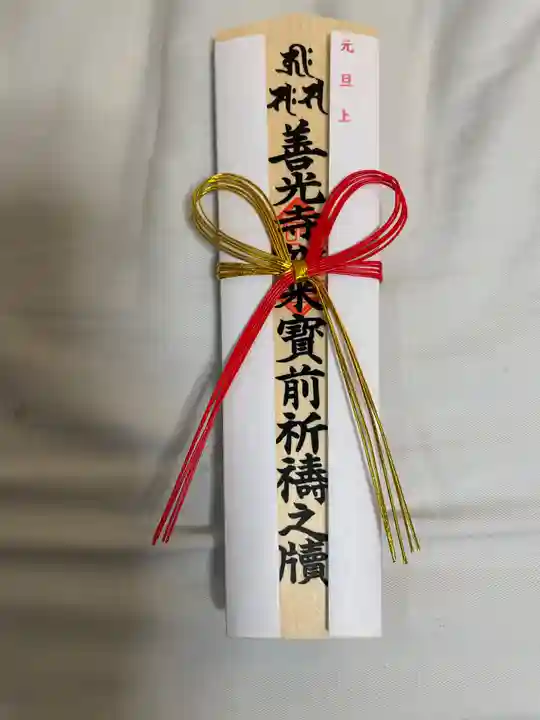 元旦上
善光寺如来寳前祈禱之牘